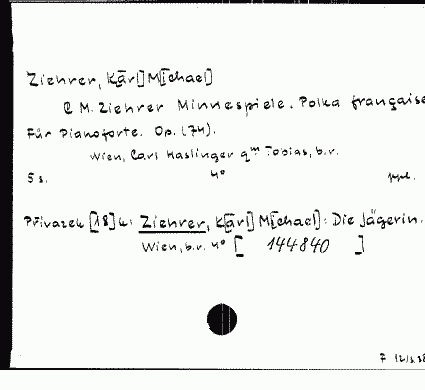 Ziehrer, K[arl] M[ichael]
C M. Ziehrer Minnespiele. Polka française
Für Pianoforte. Op. (74).
Wien, Carl Haslinger qm Tobias, b.r.
5 s. 4° ppl.
Přivazek [18] k: Ziehrer, K[arl] M[ichael]: Die Jägerin.
Wien, b.r. 4° [ 144840 ]